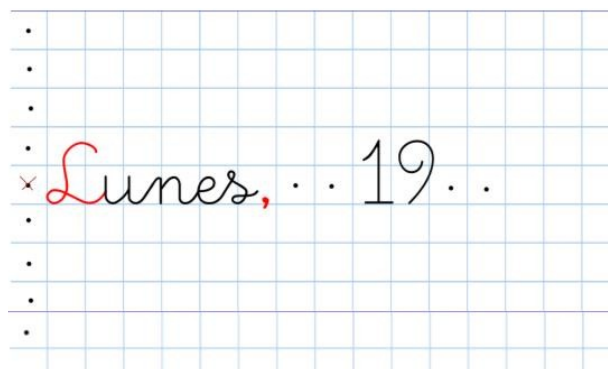 Lunes, . . 19 . .